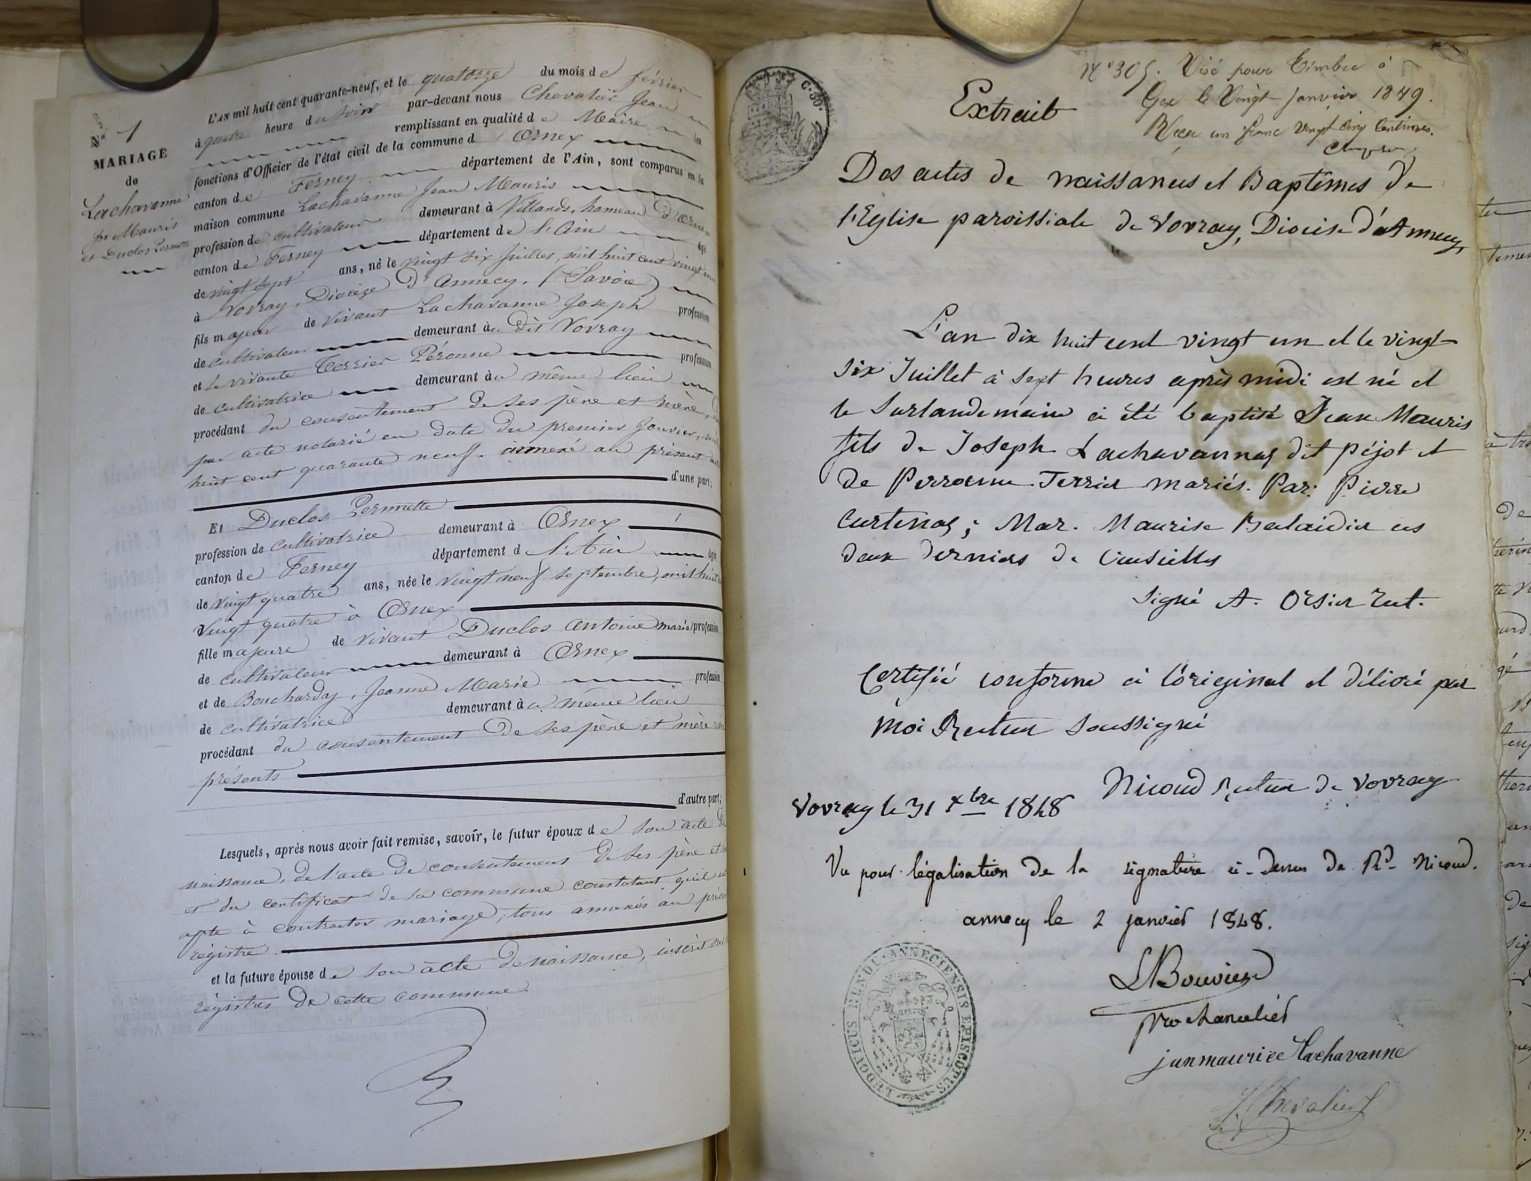 N° 1
MARIAGE
de
Lachavanne
Jn Mauris
et Duclos Pernette
L'AN mil huit cent quarante-neuf, et le quatorze du mois de février
à quatre heure du soir par-devant nous Chevalier Jean
remplissant en qualité de Maire les
fonctions d'Officier de l'état civil de la commune d'Ornex
canton de Ferney département de l'Ain, sont comparus en la
maison commune Lachavanne Jean Mauris
profession de cultivateur demeurant à Villards, hameau d'Ornex
canton de Ferney département de l'Ain âgé
de vingt sept ans, né le vingt six juillet, mil huit cent vingt un
à Vovray, Diocèze d'Annecy, (Savoie)
fils majeur de vivant Lachavanne Joseph profession
de cultivateur demeurant au dit Vovray
et de vivante Terrier Péronne profession
de cultivatrice demeurant au même lieu
procédant du consentement de ses père et mère,
par acte notarié en date du premier Janvier, mil
huit cent quarante neuf. annexé au présent
d'une part;
Et Duclos Pernette
profession de cultivatrice demeurant à Ornex
canton de Ferney département de l'Ain âgée
de vingt quatre ans, née le vingt neuf septembre, mil huit cent
vingt quatre à Ornex
fille majeure de vivant Duclos Antoine marie profession
de cultivateur demeurant à Ornex
et de Bouchardy, Jeanne Marie profession
de cultivatrice demeurant au même lieu
procédant du consentement de ses père et mère
présents
d'autre part;
Lesquels, après nous avoir fait remise, savoir, le futur époux de son acte de
naissance, de l'acte de consentement de ses père et
et du certificat de sa commune constatant qu'il est
apte à contracter mariage, tous annexés au présent
régistre.
et la future épouse de son acte de naissance, inscrit sur
régistres de cette commune
N° 305. Visé pour timbre à
Gex le Vingt janvier 1849.
Reçu un franc vingt cinq Centimes.
Extrait
Des actes de naissances et Baptêmes de
l'Eglise paroissiale de Vovray, Diocèse d'Annecy,
L'an dix huit cent vingt un et le vingt
six Juillet à sept heures après midi est né et
le surlandemain a été baptisé Jean Mauris
fils de Joseph Lachavannaz dit péjot et
de Perronne Terrier mariés. Par: Pierre
Curtenaz; Mar. Maurise Balaidier ces
deux derniers de Cruseilles
Signé A. Orsier Rect.
Certifié conforme à l'original et délivré par
moi Recteur soussigné
Nicoud Recteur de Vovray
Vovray le 31 xbre 1848
Vu pour légalisation de la signature ci-dessus de Rd Nicoud.
annecy le 2 janvier 1848.
L Bouvier
prochancelier
jean maurice lachavanne
J. Chevalier
LUDOVICUS RENDU ANNECIENSIS EPISCOPUS